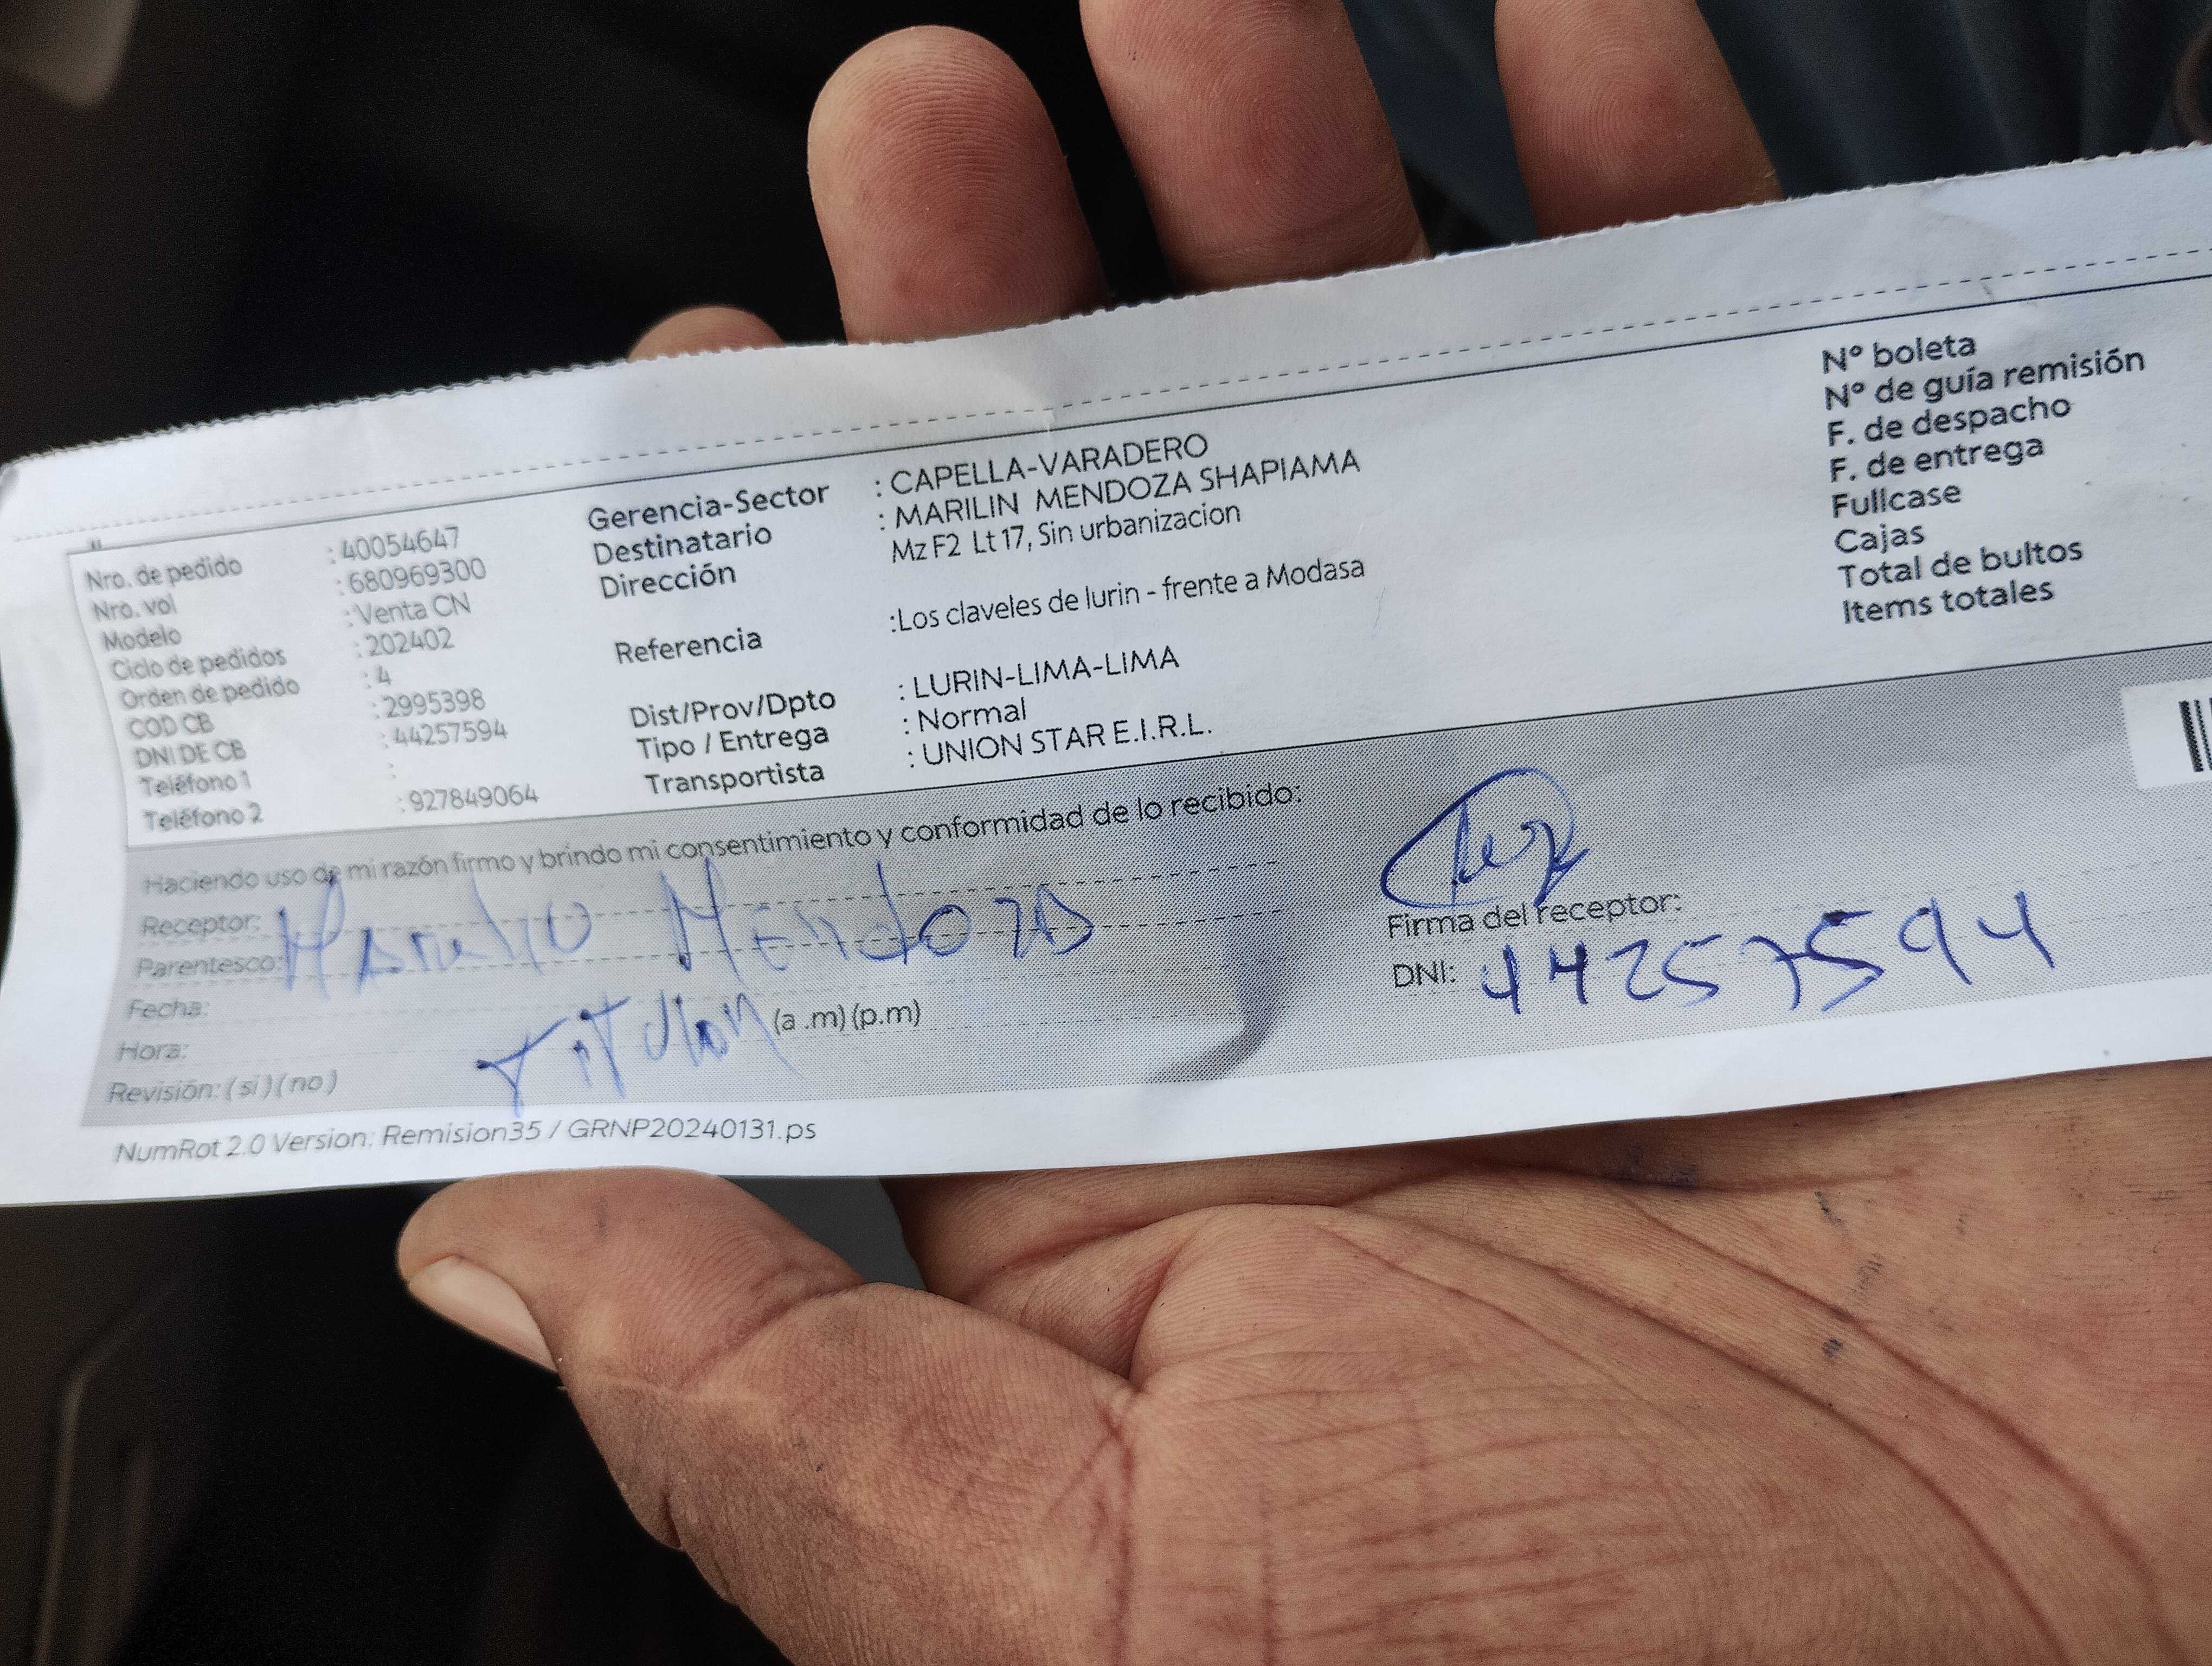 Nro. de pedido : 40054647
Nro. vol : 680969300
Modelo : Venta CN
Ciclo de pedidos : 202402
Orden de pedido : 4
COD CB : 2995398
DNI DE CB : 44257594
Teléfono 1 :
Teléfono 2 : 927849064
Gerencia-Sector : CAPELLA-VARADERO
Destinatario : MARILIN MENDOZA SHAPIAMA
Dirección Mz F2 Lt 17, Sin urbanizacion
Referencia :Los claveles de lurin - frente a Modasa
Dist/Prov/Dpto : LURIN-LIMA-LIMA
Tipo / Entrega : Normal
Transportista : UNION STAR E.I.R.L.
N° boleta
N° de guía remisión
F. de despacho
F. de entrega
Fullcase
Cajas
Total de bultos
Items totales
Haciendo uso de mi razón firmo y brindo mi consentimiento y conformidad de lo recibido:
Receptor: Mendoza
Parentesco:
Fecha:
Hora: (a .m) (p.m)
Revisión: (si) (no)
Firma del receptor:
DNI: 44257594
NumRot 2.0 Version: Remision35 / GRNP20240131.ps